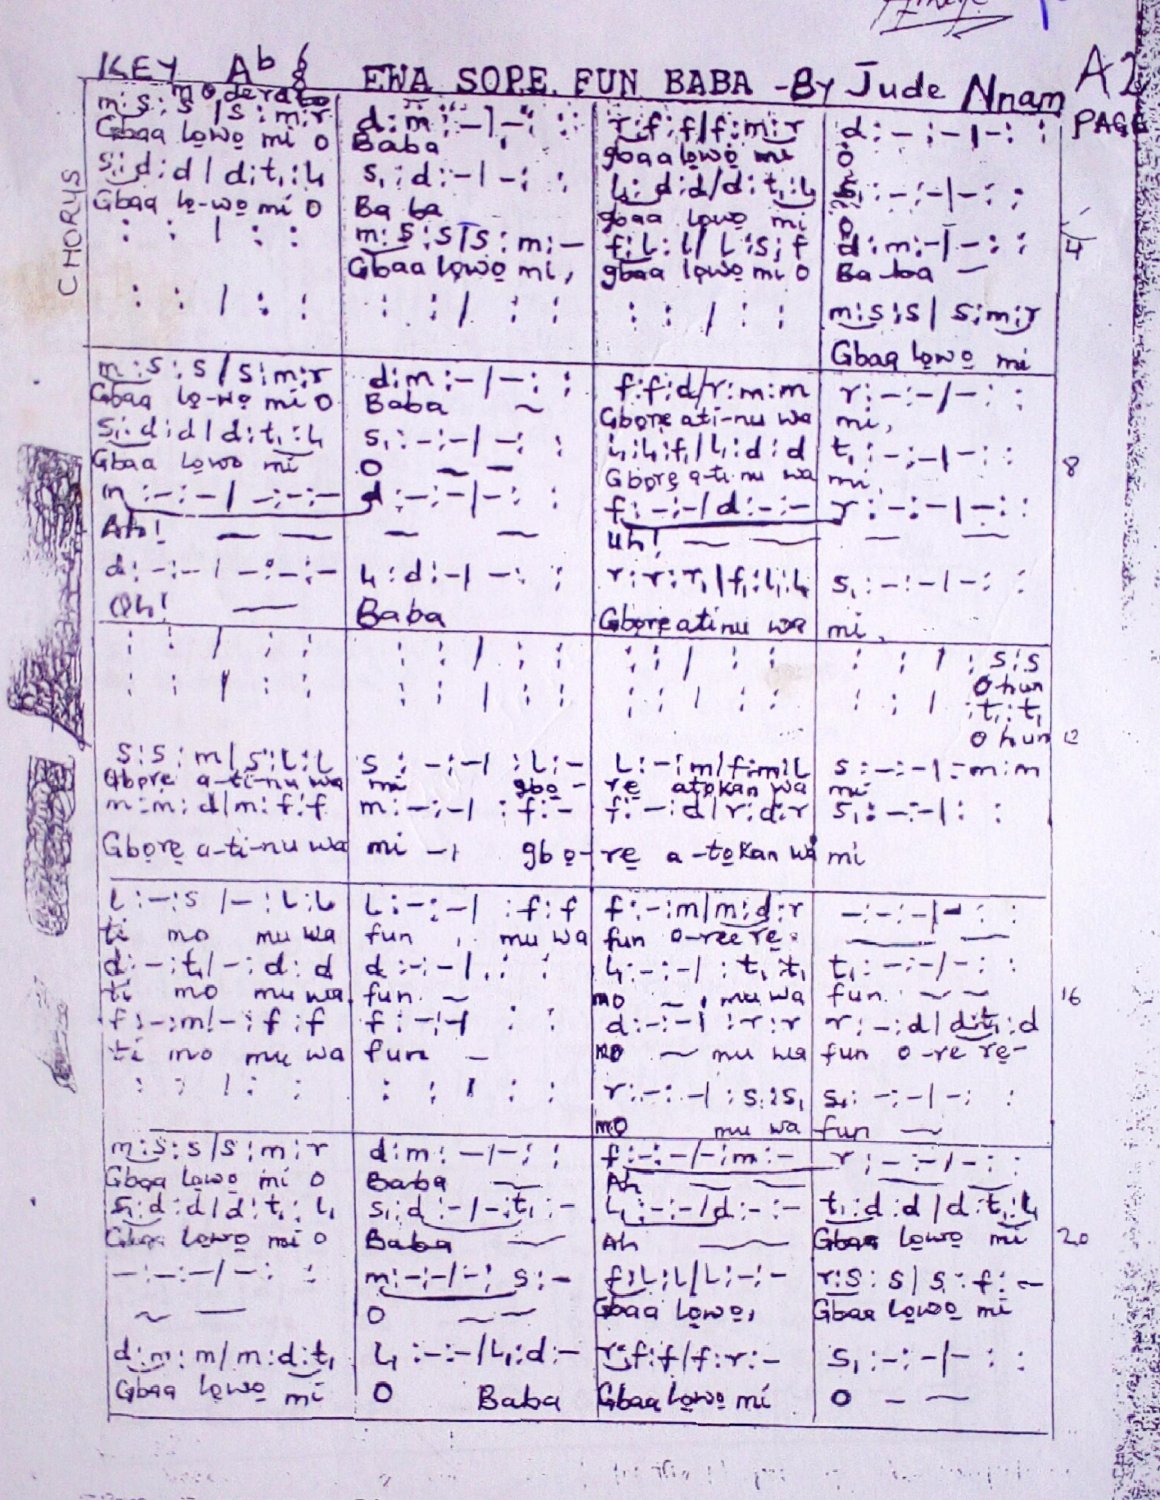 KEY Ab 6/8 EWA SOPE FUN BABA -By Jude Nnam A2
moderato
PAGE
CHORUS
m:s:s /s:m:r d:m:-/-: : r:f:f/f:m:r d:-:-/-: :
Gbaa lọwọ mi O Baba gbaa lọwọ mi O
s₁:d:d / d:t₁:l₁ s₁:d:-/-: : l₁:d:d/d:t₁:l₁ s₁:-:-/-: :
Gbaa lọ-wọ mí O Ba ba gbaa lọwọ mi O
: : / : : m:s:s/s:m:- f:l:l/l:s:f d:m:-/-: : 4
Gbaa lọwọ mi, gbaa lọwọ mi O Ba ba
: : / : : : : / : : : : / : : m:s:s/ s:m:r
Gbaa lọwọ mi
m:s:s/s:m:r d:m:-/-: : f:f:d/r:m:m r:-:-/-: :
Gbaa lọ-wọ mi O Baba ~ Gbọrẹ ati-nu wa mi,
s₁:d:d/d:t₁:l₁ s₁:-:-/-: : l₁:l₁:f₁/l₁:d:d t₁:-:-/-: : 8
Gbaa lọwọ mi O ~ ~ Gbọrẹ a-ti-nu wa mi,
m:-:-/-:-:- d:-:-/-: : f:-:-/d:-:- r:-:-/-: :
Ah! — — — — Uh! ~ ~ — —
d:-:-/-:-:- l₁:d:-/-: : r:r:r₁/f₁:l₁:l₁ s₁:-:-/-: :
Oh! ~ Baba Gbọrẹ atinu wa mi,
: : / : : : : / : : : : / : : : : / :s:s
Ohun
: : / : : : : / : : : : / : : : : / :t₁:t₁
Ohun 12
s:s:m/s:l:l s:-:-/ :l:- l:-:m/f:m:l s:-:-/-:m:m
Gbọrẹ a-ti-nu wa mi gbọ- rẹ atọkan wa mi
m:m:d/m:f:f m:-:-/ :f:- f:-:d/r:d:r s₁:-:-/ : :
Gbọrẹ a-ti-nu wa mi -, gbọ-rẹ a-tọkan wa mi
l:-:s /-:l:l l:-:-/ :f:f f:-:m/m:d:r -:-:-/-: :
ti mo mu wa fun, mu wa fun o-ree rẹ. — —
d:-:t₁/-:d:d d:-:-/ : : l₁:-:-/ :t₁:t₁ t₁:-:-/-: :
ti mo mu wa fun. ~ mo ~, mu wa fun. ~ ~ 16
f:-:m/-:f:f f:-:-/ : : d:-:-/ :r:r r:-:d/d:t₁:d
ti mo mu wa fun - mo ~ mu wa fun o-re rẹ-
: : / : : : : / : : r:-:-/ :s₁:s₁ s₁:-:-/-: :
mo mu wa fun ~
m:s:s/s:m:r d:m:-/-: : f:-:-/-:m:- r:-:-/-: :
Gbaa lọwọ mí O Baba ~ Ah ~ ~
s₁:d:d/d:t₁:l₁ s₁:d:-/-:t₁:- l₁:-:-/d:-:- t₁:d:d/d:t₁:l₁
Gbaa lọwọ mi O Baba ~ Ah ~ Gbaa lọwọ mi 20
-:-:-/-: : m:-:-/-:s:- f:l:l/l:-:- r:s:s/s:f:-
~ — O ~ ~ Gbaa lọwọ, Gbaa lọwọ mí
d:m:m/m:d:t₁ l₁:-:-/l₁:d:- r:f:f/f:r:- s₁:-:-/-: :
Gbaa lọwọ mi O Baba Gbaa lọwọ mí O - ~